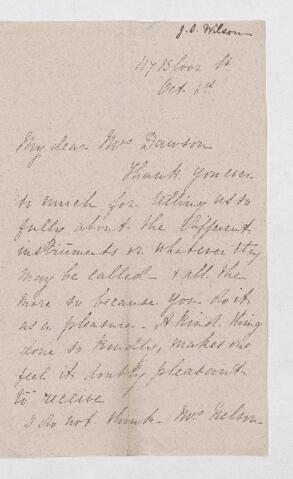 J. S. Wilson
47 Bloor St
Oct 6th
My dear Mrs Dawson
Thank you ever
so much for telling us so
fully about the different
instruments or whatever they
may be called - & all the
more so because you do it
as a pleasure - A kind thing
done so kindly, makes one
feel it doubly pleasant
to receive
I do not think Mrs Nelson